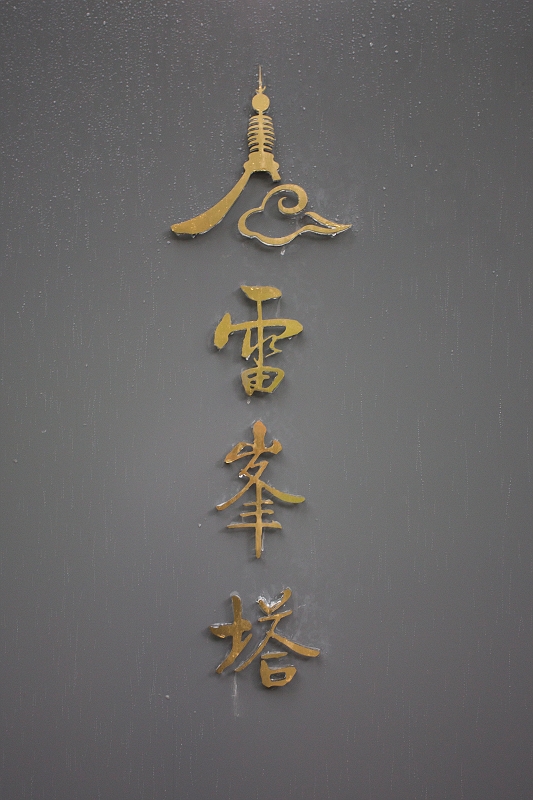 雷峯塔